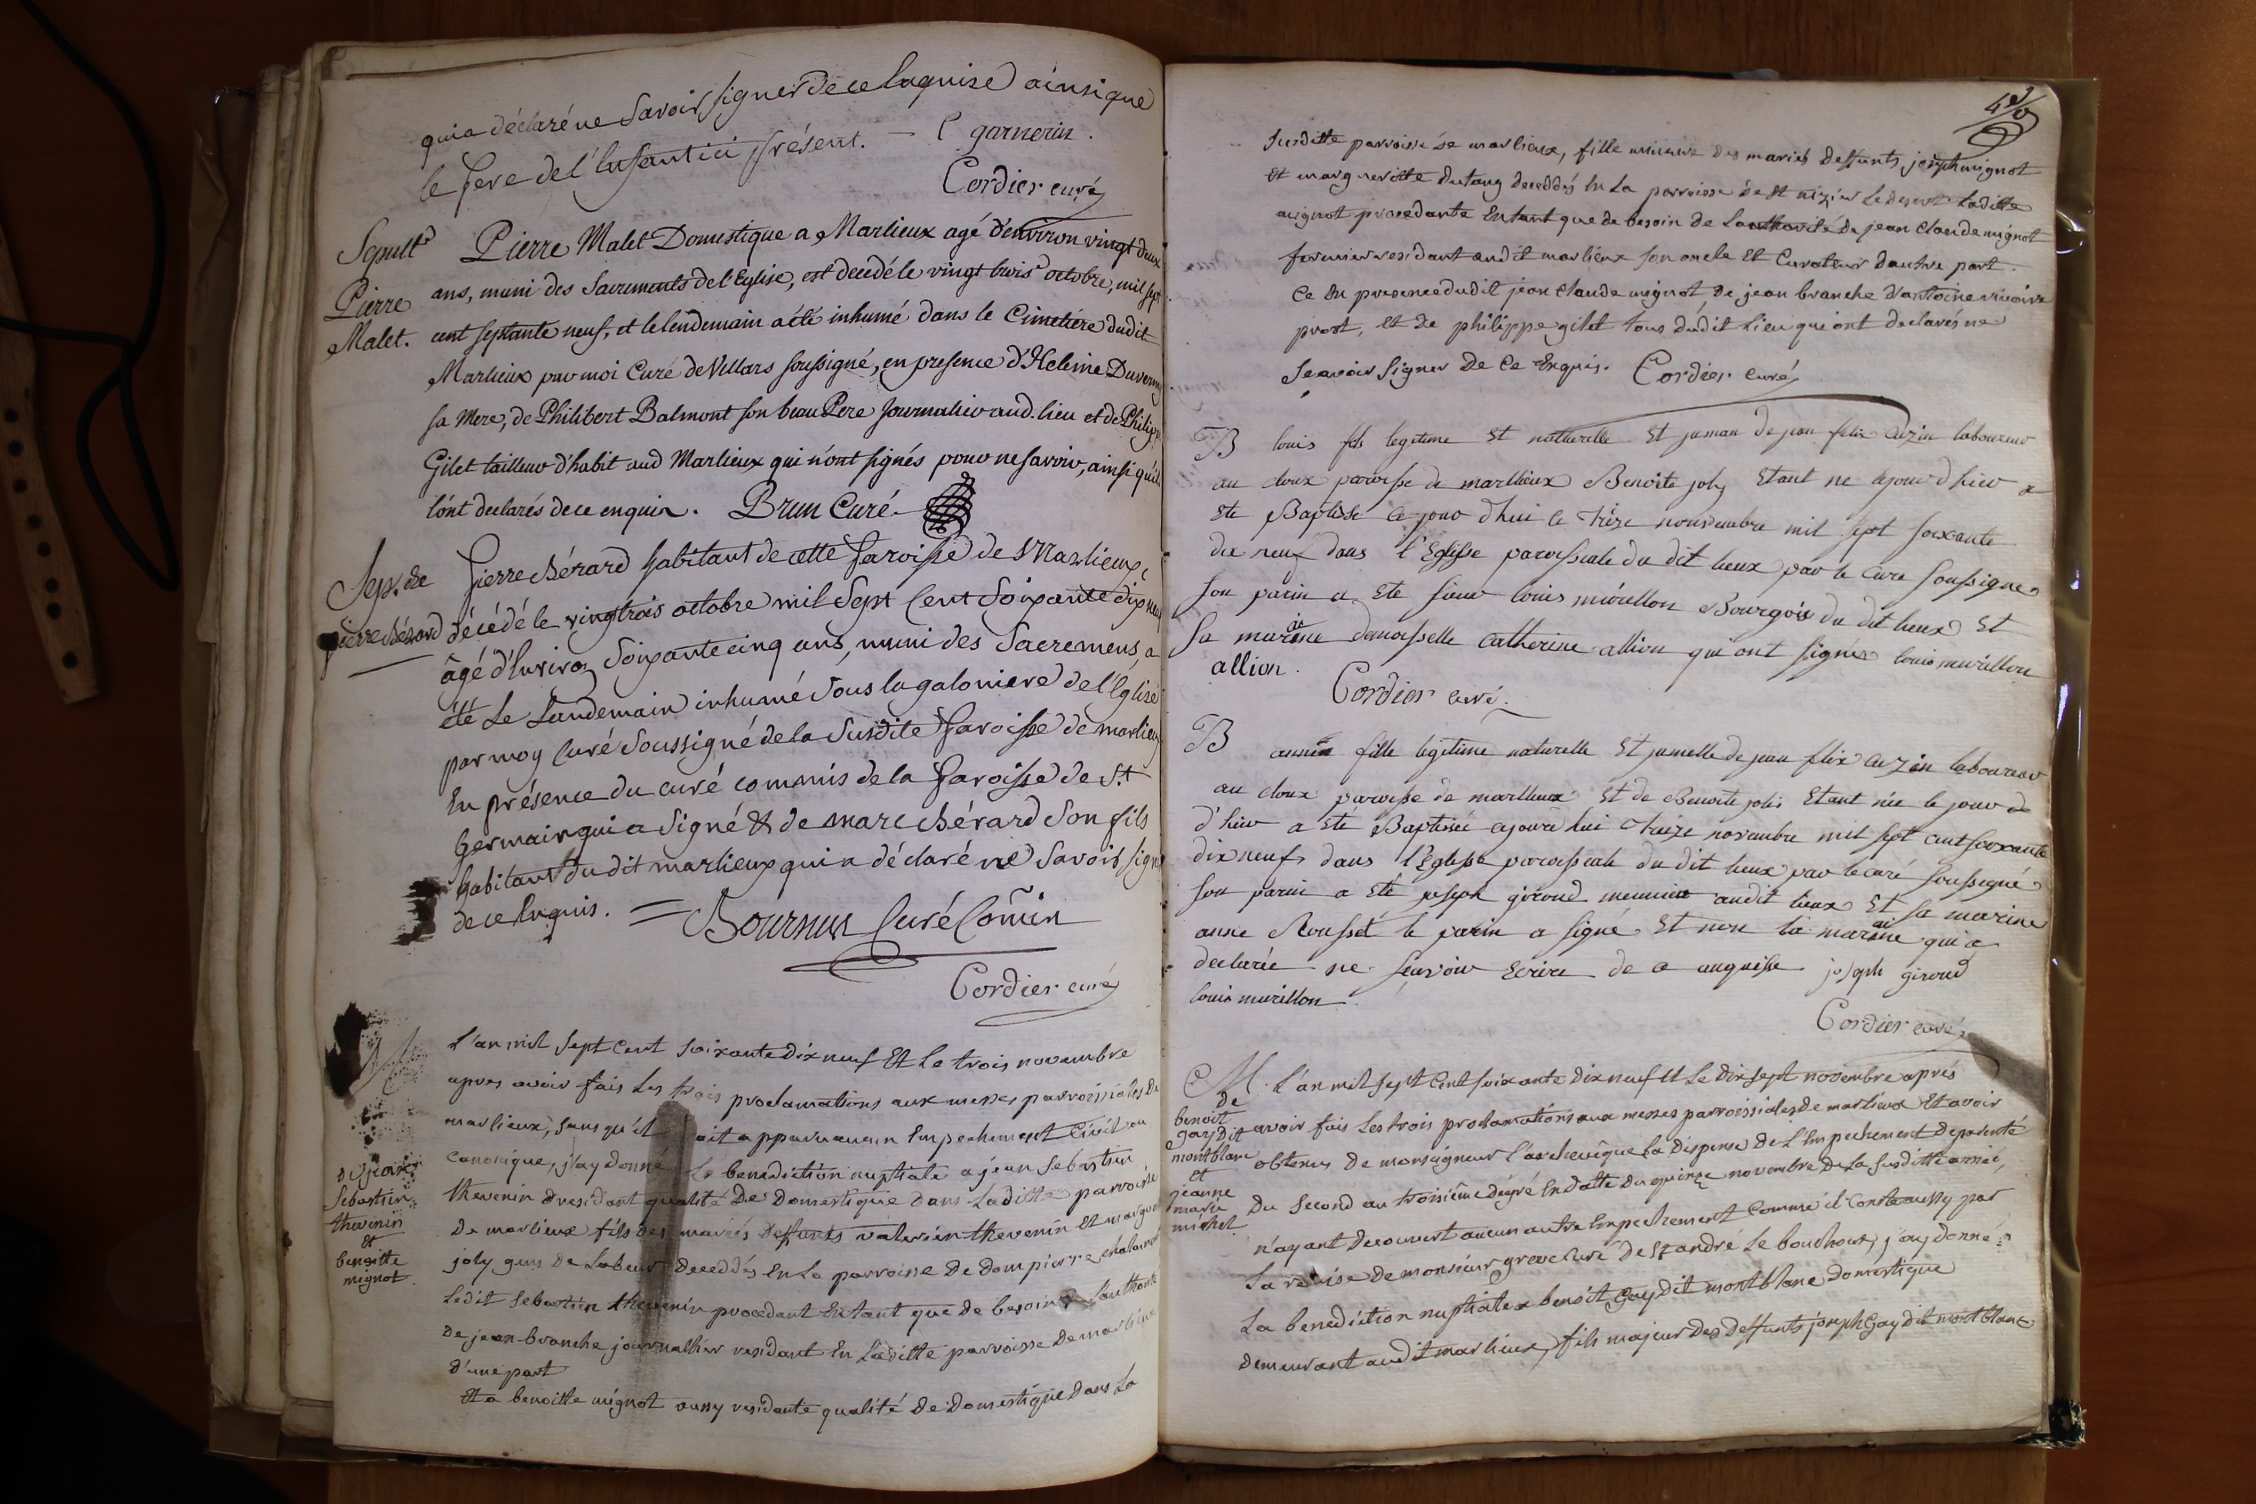 qui a déclaré ne Savoir Signer de ce Enquise ainsi que
le pere de l'Enfant ici présent. — C garnerin.
Cordier curé
Sepult.
Pierre
Malet.
Pierre Malet Domestique a Marlieux agé d'environ vingt deux
ans, muni des Sacrements de l'Eglise, est decedé le vingt trois octobre, mil sept
cent septante neuf, et le lendemain a été inhumé dans le Cimetiére dudit
Marlieux par moi Curé de Villars soussigné, en presence d'Heleine
sa Mere, de Philibert Balmont son beau Pere journalier aud. lieu et de Philippe
Gilet tailleur d'habit aud Marlieux qui n'ont signés pour ne savoir, ainsi qu'ils
l'ónt declarés de ce enquis. Brun Curé.
Sep.re de
pierre Bérard
Pierre Bérard habitant de cette Paroisse de Marlieux,
décédé le vingtrois octobre mil Sept Cent Soixante dix neuf
âgé d'Environ Soixante cinq ans, muni des Sacremens, a
été Le Landemain inhumé Sous la galoniere de l'Eglise
par moy Curé Soussigné de la Susdite Paroisse de marlieux
En présence du curé commis de la Paroisse de St
Germain qui a Signé & de marc Bérard Son fils
habitant du dit marlieux qui a déclaré ne Savoir signer
de ce Enquis. = Bournus Curé Com̃in
Cordier curé
M
de jean
Sebastien
thevenin
et
benoitte
mignot.
L'an mil Sept Cent Soixante Dix neuf Et Le trois novembre
apres avoir fais Les trois proclamations aux messes parroissiales De
marlieux, Sans qu'il ait apparu aucun Empechement Civil ou
Canonique, j'ay donné La benediction nuptiale a jean Sebastien
thevenin residant qualité De Domestique Dans Laditte parroisse
De marlieux fils des mariés Deffunts valerien thevenin Et marguerite
joly gens De Labeur Deceddés En La parroisse De Dompierre
Ledit Sebastien thevenin procedant En tant que de besoin de L'authorité
De jean branche journallier residant En Laditte parroisse De marlieux
D'une part
Et a benoitte mignot aussy residante qualité De Domestique Dans La
Susditte parroisse de marlieux, fille mineure des mariés deffunts joseph mignot
Et margueritte dutang deceddés En La parroisse de St nizier Le desert Laditte
mignot procedante Entant que de besoin de Lauthorité de jean Claude mignot
fermier residant audit marlieux Son oncle Et Curateur d'autre part.
Ce En presence dudit jean Claude mignot, De jean branche D'antoine
prost, Et de philippe gilet tous dudit Lieu qui ont declarés ne
Scavoir Signer De Ce Enquis. Cordier curé
B louis fils legitime Et naturelle Et juman de jean felix cuzin laboureur
au cloux paroisse de marllieux Benoite joly Etant ne ajour d'hier a
Ete Baptisé ce jour d'hui le treze nouvembre mil sept soixante
dix neuf dans l'Eglisse paroissiale du dit lieux par le curé soussigne
son parin a Ete sieur louis murillon Bourgois du dit lieux Et
sa marine demoisselle catherine allion qui ont signés louis murillon
allion. Cordier curé.
B anne fille legitime naturelle Et jumelle de jean flix cuzin laboureur
au cloux paroisse de marllieux Et de Benoite jolis Etant née le jour
d'hier a Eté Baptisée ajourd hui treize novembre mil sept cent soixante
dix neuf dans l'Eglisse paroissiale du dit lieux par le curé soussigné
son parin a Eté joseph giroud meunier audit lieux Et sa marine
anne Rousset le parin a signé Et non la marine qui a
declarée ne scavoir Ecrire de ce anquisse joseph giroud
louis murillon.
Cordier curé
M.
de
benoit
gay dit
montblanc
et
jeanne
marie
michel
L'an mil Sept Cent Soixante Dix neuf Et Le Dix Sept novembre aprés
avoir fais Les trois proclamations aux messes parroissiales De marlieux Et avoir
obtenus De monseigneur L'archevêque La Dispense De L'Empechement De parenté
Du Second au troisiême degré En datte Du quinze novembre De La Susditte année,
n'ayant Decouvert aucun autre Empechement Comme il Conste aussy par
La remise De monsieur greve Curé De St andré Le bouchoux, j'ay donné
La benediction nuptiale a benoit Gay Dit montblanc Domestique
Demeurant audit marlieux, fils majeur Des Deffunts joseph Gay dit montblanc